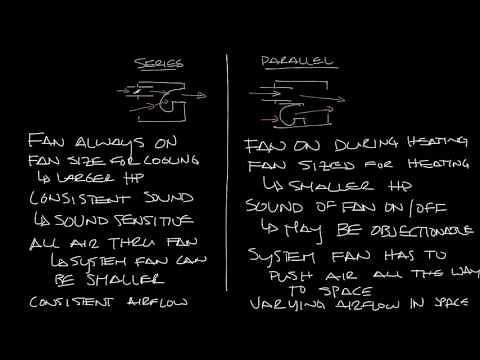 SERIES
FAN ALWAYS ON
FAN SIZE FOR COOLING
↳ LARGER HP
CONSISTENT SOUND
↳ SOUND SENSITIVE
ALL AIR THRU FAN
↳ SYSTEM FAN CAN
BE SMALLER
CONSISTENT AIRFLOW
PARALLEL
FAN ON DURING HEATING
FAN SIZED FOR HEATING
↳ SMALLER HP
SOUND OF FAN ON/OFF
↳ MAY BE OBJECTIONABLE
SYSTEM FAN HAS TO
↳ PUSH AIR ALL THE WAY
TO SPACE
VARYING AIRFLOW IN SPACE